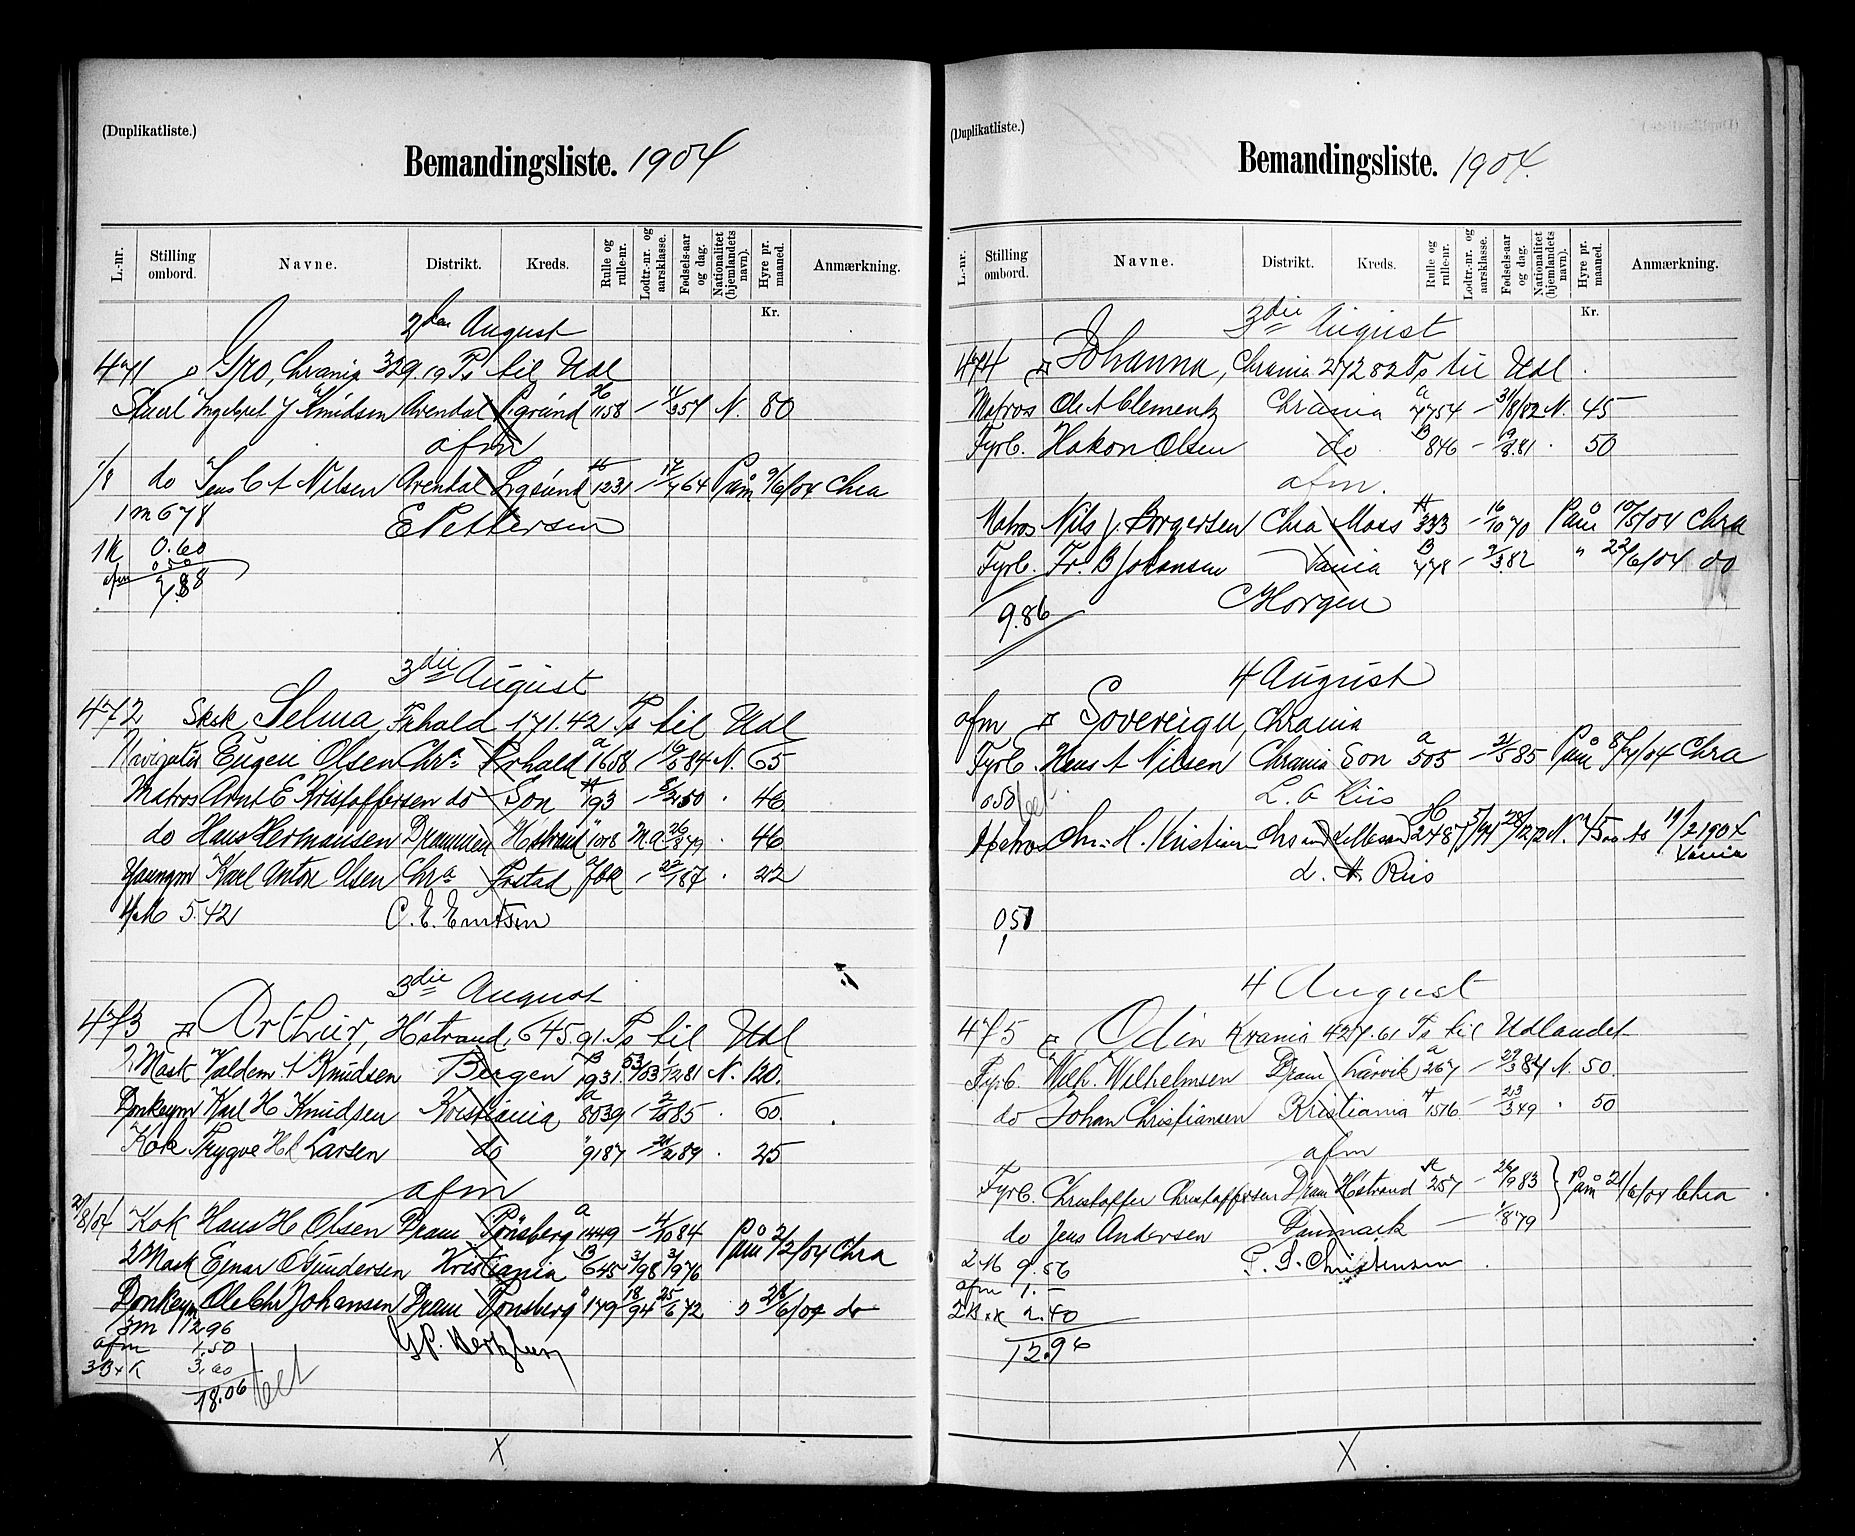 (Duplikatliste.)
Bemandingsliste. 1904
L.-nr. Stilling ombord. Navne. Distrikt. Kreds. Rulle og rulle-nr. Lodtr.-nr. og aarsklasse. Fødsels-aar og dag. Nationalitet (hjemlandets navn). Hyre pr. maaned. Anmærkning.
Kr.
2den August
471 Gro, Chrania 329.19 Ts til Udl
Ingebret J Knudsen Arendal Grund 1158 N. 80
afm
do Jens C A Nilsen Arendal 1231 Paam 9/6/04 Chra
1 M 678
E Pettersen
1 K 0.60
afm 050
7.88
3die August
472 Sksk Selma, Frhald 171.42 Ts til Udl
Eugen Olsen Chra Frhald 1658 84 N. 65
Matros Arnt E Kristoffersen do Son 193 46
do Hans Hermansen Drammen Hstrand 1078 46
Youngm Karl Anton Olsen Chra Frstad 22
5.42
3die August
473 Arthur, Hstrand, 645.91 Ts til Udl
2 Mask Valdem. A Knudsen Bergen 1931 53/03 1/2 81 N. 120.
Donkeym Karl H Knudsen Kristiania 8039 2/10 85 60.
Kok Trygve Larsen do 9187 25
afm
2/8/04 Kok Hans H Olsen Dram Tønsberg 1449 4/10 84 Paam 2/2/04 Chra
2 Mask Ejnar O Gundersen Kristiania 645 3/98 3/1 76
Donkeym Ole Chr Johansen Dram Tønsberg 179 18/94 25/6 72 " 28/6/04 do
3 M 12.96
afm 1.50
3 B+K 3.60
18.06
X
(Duplikatliste.)
Bemandingsliste. 1904.
L.-nr. Stilling ombord. Navne. Distrikt. Kreds. Rulle og rulle-nr. Lodtr.-nr. og aarsklasse. Fødsels-aar og dag. Nationalitet (hjemlandets navn). Hyre pr. maaned. Anmærkning.
Kr.
3die August
474 Johanna, Chrania 272 82 Ts til Udl.
Matros Ole A Clementz Chrania 7754 3/8/82 N. 45
Fyrb. Hakon Olsen do 846 19/8.81 50
afm.
Matros Nils J Borgersen Chra Moss 333 16/10 70 Paam 10/5/04 Chra
Fyrb. Fr. B Johansen Xania 778 9/3.82 " 22/6/04 do
C Horgen
9.86
4 August
afm Sovereign, Chrania
Fyrb. Hans A Nilsen Chrania Son 505 85 Paam 8/7/04 Chra
050
L. A Riis
Matros Chr. H. Kristian 19/2 1904
Xania
L. A. Riis
0.50
4 August
475 Odin Krania 427.61 Ts til Udlandet
Fyrb. Wilh. Wilhelmsen Dram Larvik 267 29/3 84 N. 50.
do Johan Christiansen Kristiania 1516 23/3 49 50
afm
Fyrb. Christoffer Christoffersen Dram Hstrand 257 26/9 83 Paam 21/6/04 Chra
do Jens Andersen Danmark 1/8 79
2 M 9.56 P. S. Christensen
afm 1.-
2 B+K 2.40
12.96
X